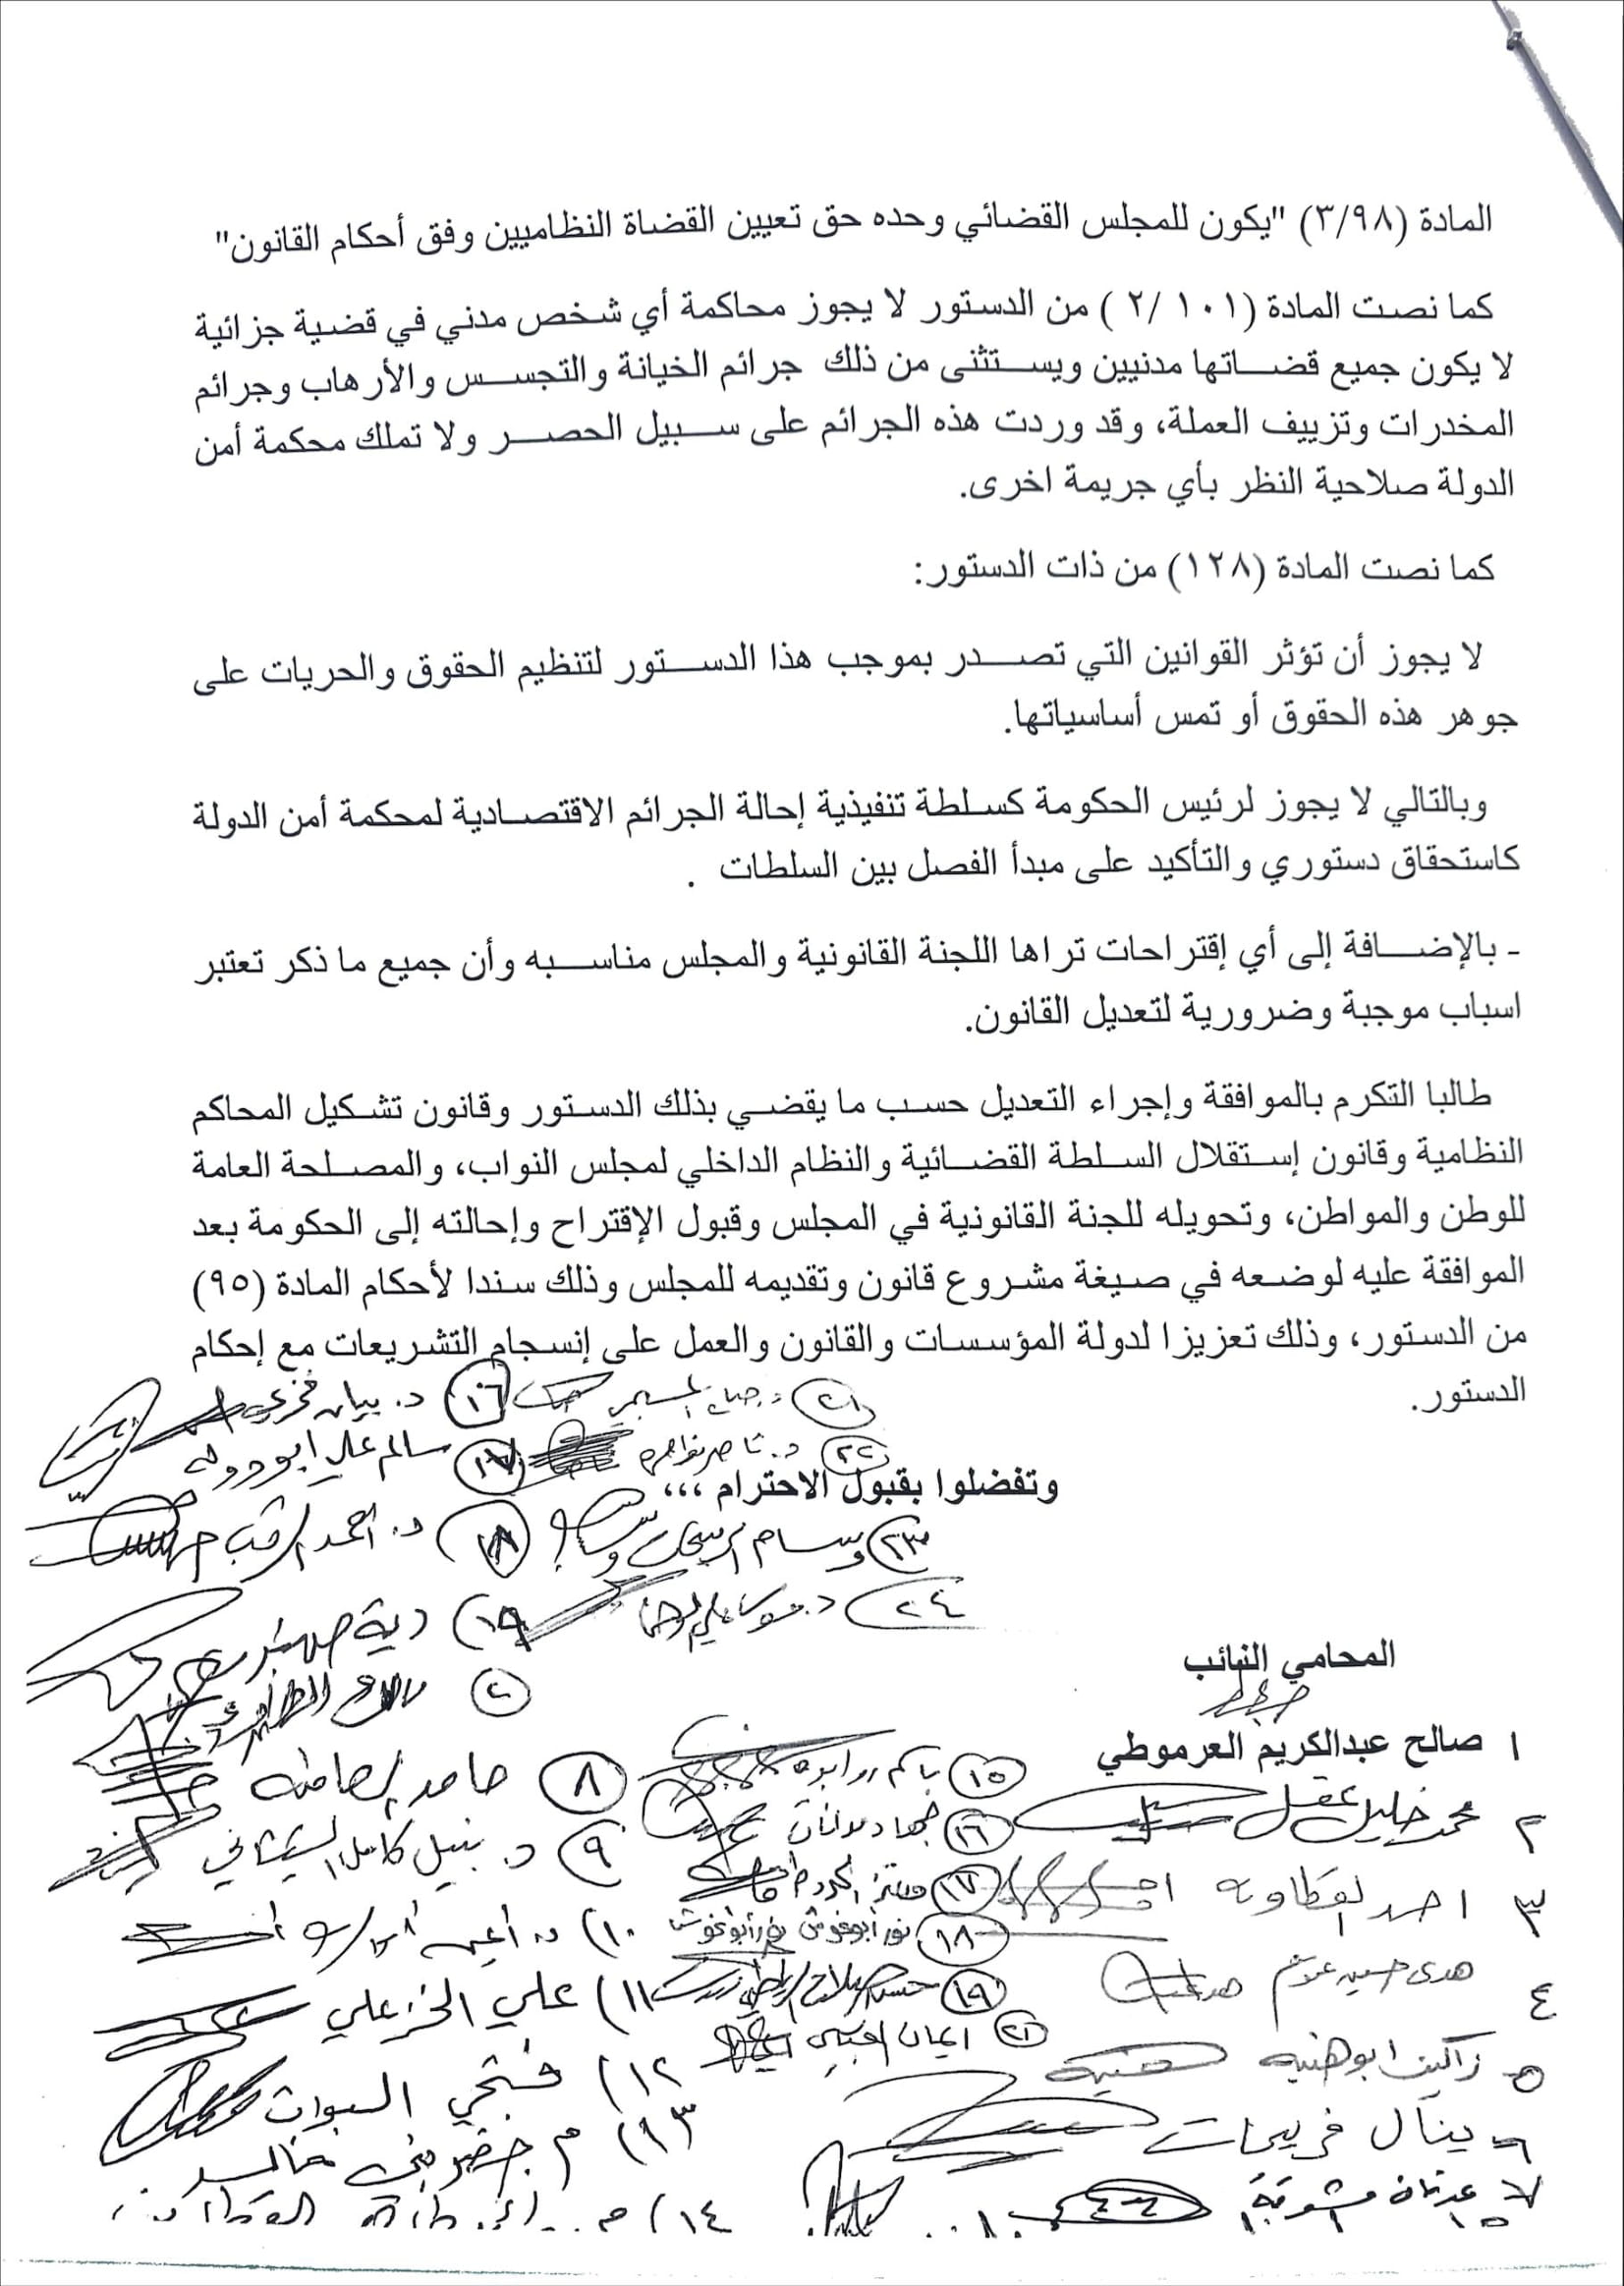 المادة (٣/٩٨) "يكون للمجلس القضائي وحده حق تعيين القضاة النظاميين وفق أحكام القانون"
كما نصت المادة (١٠١ /٢ ) من الدستور لا يجوز محاكمة أي شخص مدني في قضية جزائية
لا يكون جميع قضاتها مدنيين ويستثنى من ذلك جرائم الخيانة والتجسس والأرهاب وجرائم
المخدرات وتزييف العملة، وقد وردت هذه الجرائم على سبيل الحصر ولا تملك محكمة أمن
الدولة صلاحية النظر بأي جريمة اخرى.
كما نصت المادة (١٢٨) من ذات الدستور:
لا يجوز أن تؤثر القوانين التي تصدر بموجب هذا الدستور لتنظيم الحقوق والحريات على
جوهر هذه الحقوق أو تمس أساسياتها.
وبالتالي لا يجوز لرئيس الحكومة كسلطة تنفيذية إحالة الجرائم الاقتصادية لمحكمة أمن الدولة
كاستحقاق دستوري والتأكيد على مبدأ الفصل بين السلطات .
- بالإضافة إلى أي إقتراحات تراها اللجنة القانونية والمجلس مناسبه وأن جميع ما ذكر تعتبر
اسباب موجبة وضرورية لتعديل القانون.
طالبا التكرم بالموافقة وإجراء التعديل حسب ما يقضي بذلك الدستور وقانون تشكيل المحاكم
النظامية وقانون إستقلال السلطة القضائية والنظام الداخلي لمجلس النواب، والمصلحة العامة
للوطن والمواطن، وتحويله للجنة القانونية في المجلس وقبول الإقتراح وإحالته إلى الحكومة بعد
الموافقة عليه لوضعه في صيغة مشروع قانون وتقديمه للمجلس وذلك سندا لأحكام المادة (٩٥)
من الدستور، وذلك تعزيزا لدولة المؤسسات والقانون والعمل على إنسجام التشريعات مع إحكام
الدستور.
١٦ د. بيان فخري
١٧ سالم علي ابو دولة
٢٢ د.
وتفضلوا بقبول الاحترام ،،،
٢٣ وسام
١٨ د. احمد الرقب
٢٤ د.
١٩) دية
٢٠
المحامي النائب
١ صالح عبدالكريم العرموطي
٢ محمد خليل عقل
٣ احمد القطاونة
٤ هدى حسين
٥ زاكين ابو هنيه
٦ ينال فريحات
٧ عدنان مشوقة
٨ حامد
٩ د. نبيل كامل الشيشاني
١٠) د.
١١) علي الخزعلي
١٢) فتحي البوات
١٣) م خضر بني خالد
١٤) م.
١٥ باسم
١٦ جهاد مدانات
١٧ معتز
١٨ نور ابوغوش
١٩
٢١ ايمان